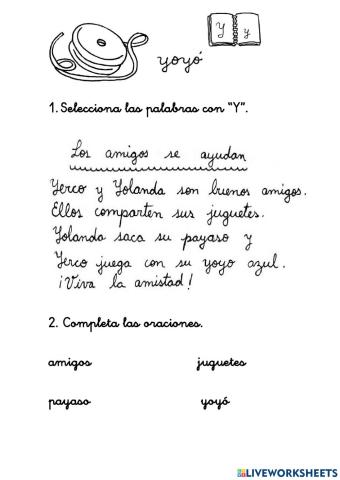 Y y
yoyó
1. Selecciona las palabras con "Y".
Los amigos se ayudan
Yerco y Yolanda son buenos amigos.
Ellos comparten sus juguetes.
Yolanda saca su payaso y
Yerco juega con su yoyo azul.
¡Viva la amistad!
2. Completa las oraciones.
amigos juguetes
payaso yoyó
LIVEWORKSHEETS